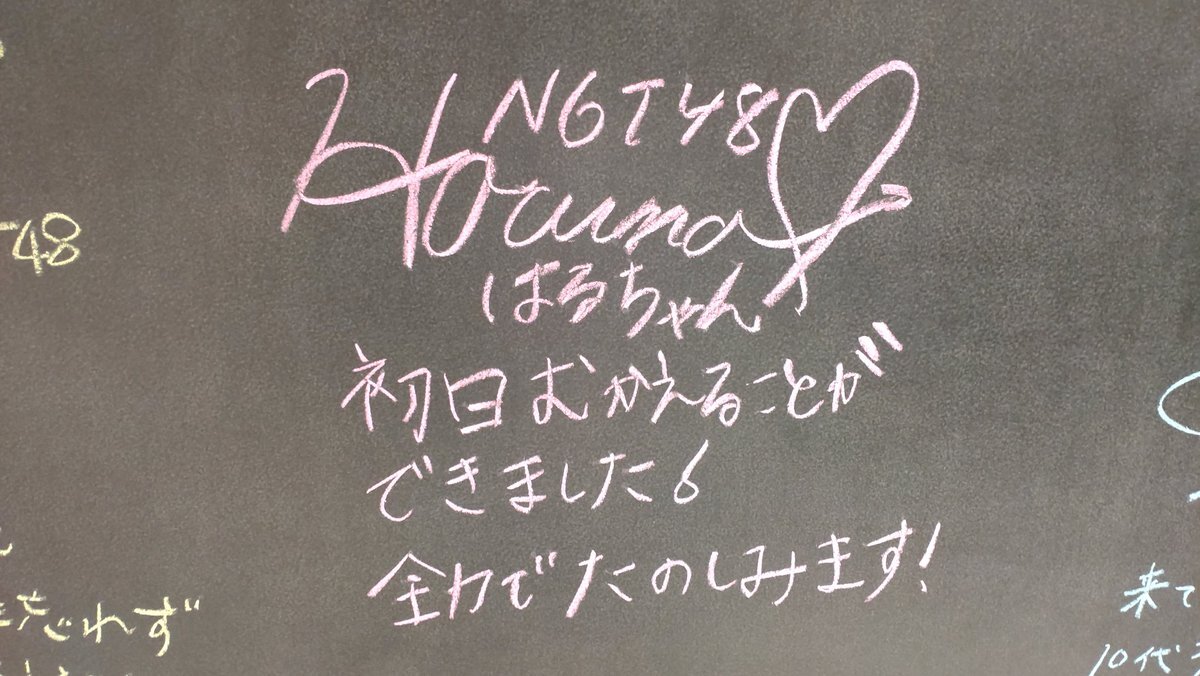 NGT48
Haruna
はるちゃん
初日むかえることが
できました6
全力でたのしみます!
48
忘れず
来て
10代